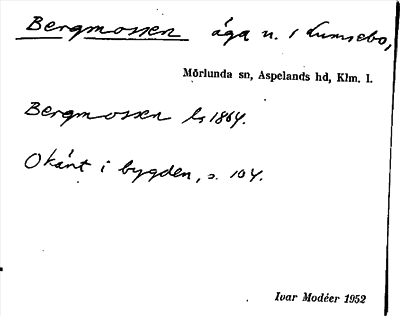 Bergmossen äga n. 1 Lumsebo,
Mörlunda sn, Aspelands hd, Klm. l.
Bergmossen ls 1864.
Okänt i bygden, s. 104.
Ivar Modéer 1952